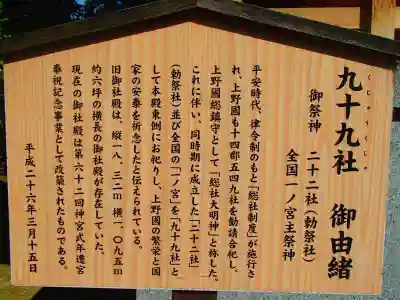 九十九社　御由緒
くじゅうくしゃ
御祭神　二十二社（勅祭社）
全国一ノ宮主祭神
平安時代、律令制のもと「総社制度」が施行さ
れ、上野國も十四郡五四九社を勧請合祀し、
上野國総鎮守として「総社大明神」と称した。
これに伴い、同時期に成立した「二十二社」
（勅祭社）並び全国の「一ノ宮」を「九十九社」と
して本殿東側にお祀りし、上野國の繁栄と国
家の安泰を祈念したと伝えられている。
旧御社殿は、縦一八、三二m　横一、〇九五m
約六坪の横長の御社殿が存在していた。
現在の御社殿は第六十二回神宮式年遷宮
奉祝記念事業として改築されたものである。
平成二十六年三月十五日